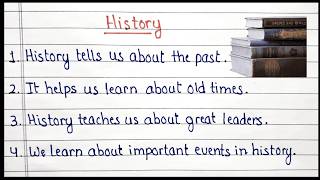 History
1. History tells us about the past.
2. It helps us learn about old times.
3. History teaches us about great leaders.
4. We learn about important events in history.